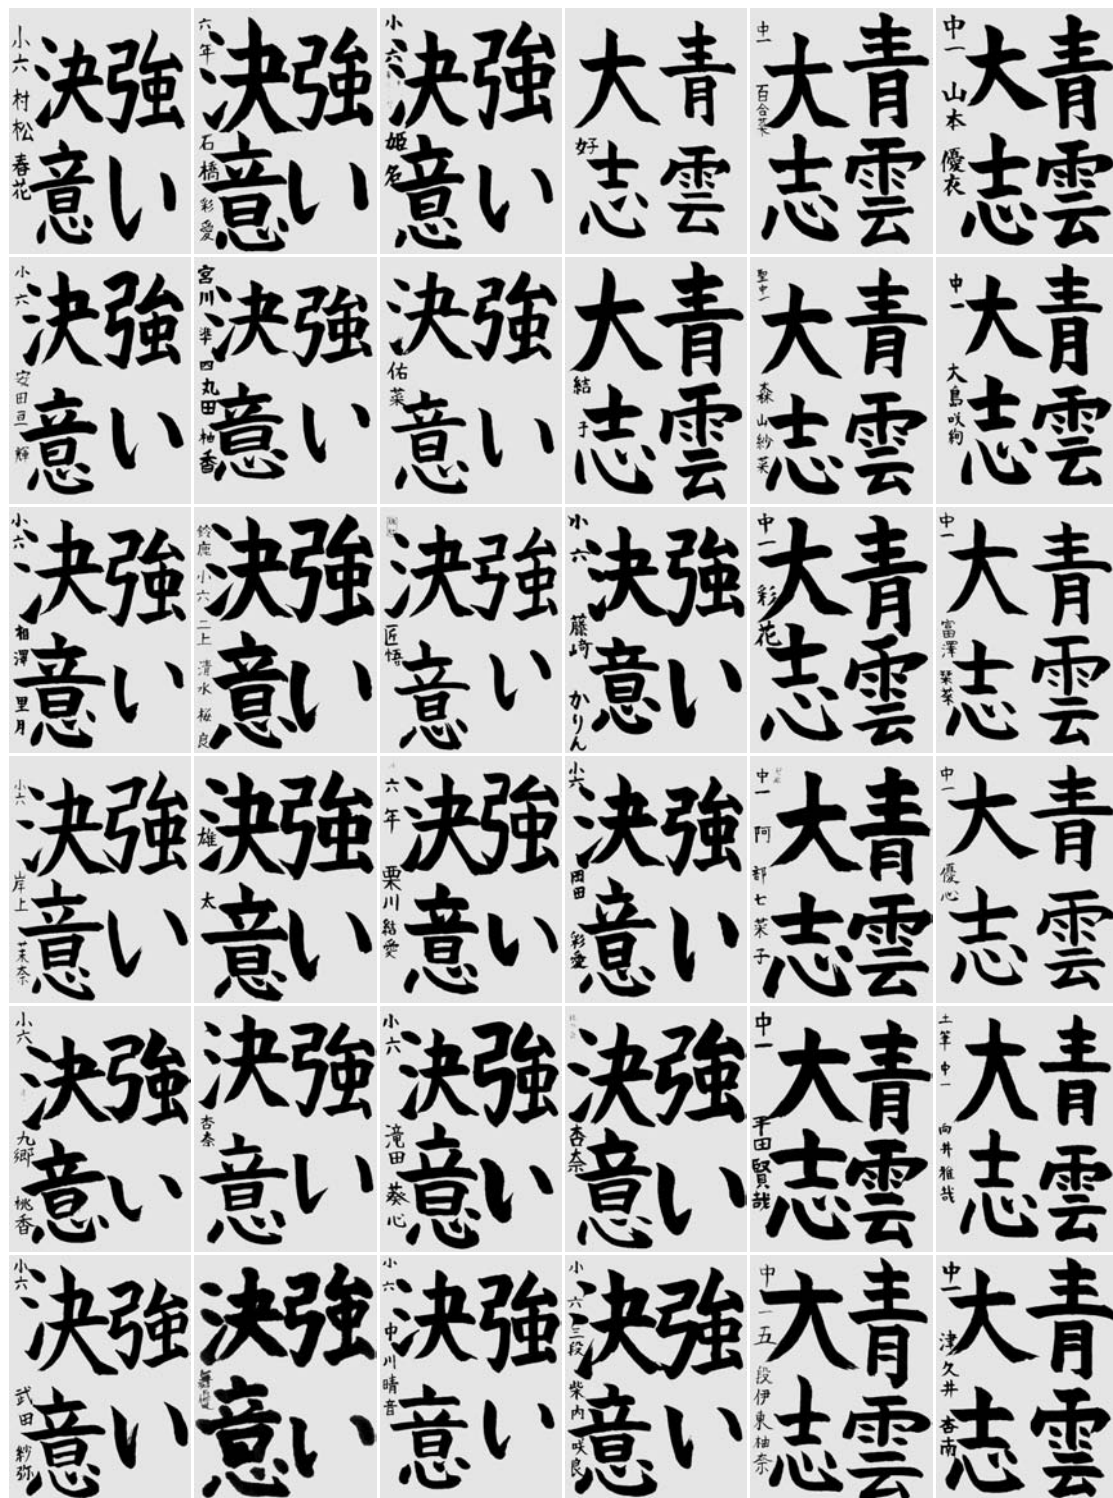 強い
決意
小六 村松春花
強い
決意
六年 石橋彩愛
強い
決意
小六 姫名
青雲
大志
好
青雲
大志
中一 百合菜
青雲
大志
中一 山本優衣
強い
決意
小六 安田亘輝
強い
決意
宮川 準四 丸田柚香
強い
決意
佑菜
青雲
大志
結子
青雲
大志
聖中一 森山紗菜
青雲
大志
中一 大島咲絢
強い
決意
小六 相澤里月
強い
決意
鈴鹿 小六 二上 清水桜良
強い
決意
匠悟
強い
決意
小六 藤崎かりん
青雲
大志
中一 彩花
青雲
大志
中一 富澤栞菜
強い
決意
小六 岸上茉奈
強い
決意
雄太
強い
決意
六年 栗川結愛
強い
決意
小六 岡田彩愛
青雲
大志
中一 阿部七菜子
青雲
大志
中一 優心
強い
決意
小六 九郷桃香
強い
決意
杏奈
強い
決意
小六 滝田葵心
強い
決意
杏奈
青雲
大志
中一 平田賢哉
青雲
大志
土筆 中一 向井雅哉
強い
決意
小六 武田紗弥
強い
決意
強い
決意
小六 中川晴音
強い
決意
小六 三段 柴内咲良
青雲
大志
中一 五段 伊東柚奈
青雲
大志
中一 津久井杏南